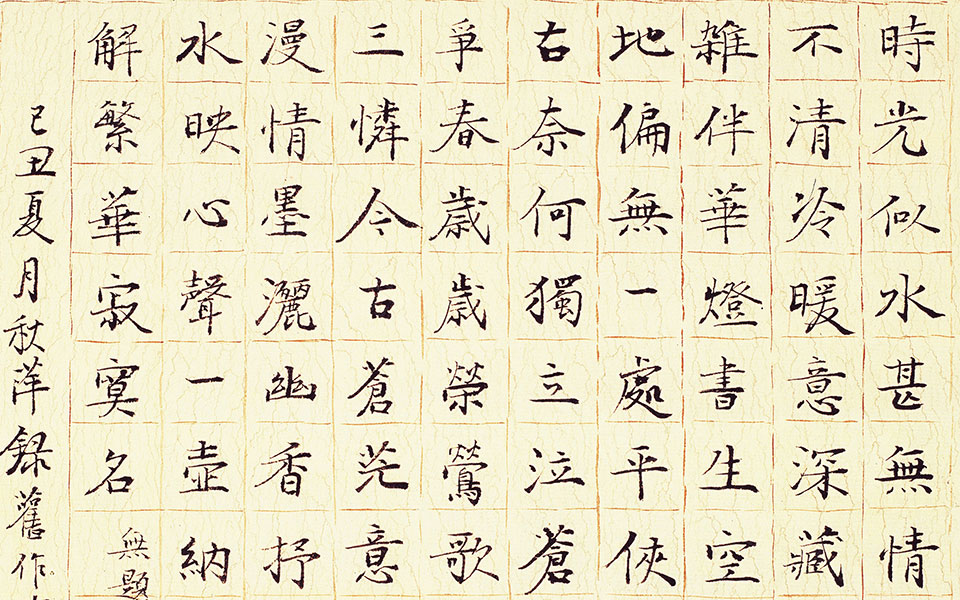 時光似水甚無情
不清冷暖意深藏
雜伴華燈書生空
地偏無一處平俠
右奈何獨立泣蒼
爭春歲歲榮鶯歌
三憐今古蒼茫意
漫情墨灑幽香抒
水映心聲一壺納
解繁華寂寞名
無題
己丑夏月秋萍録舊作